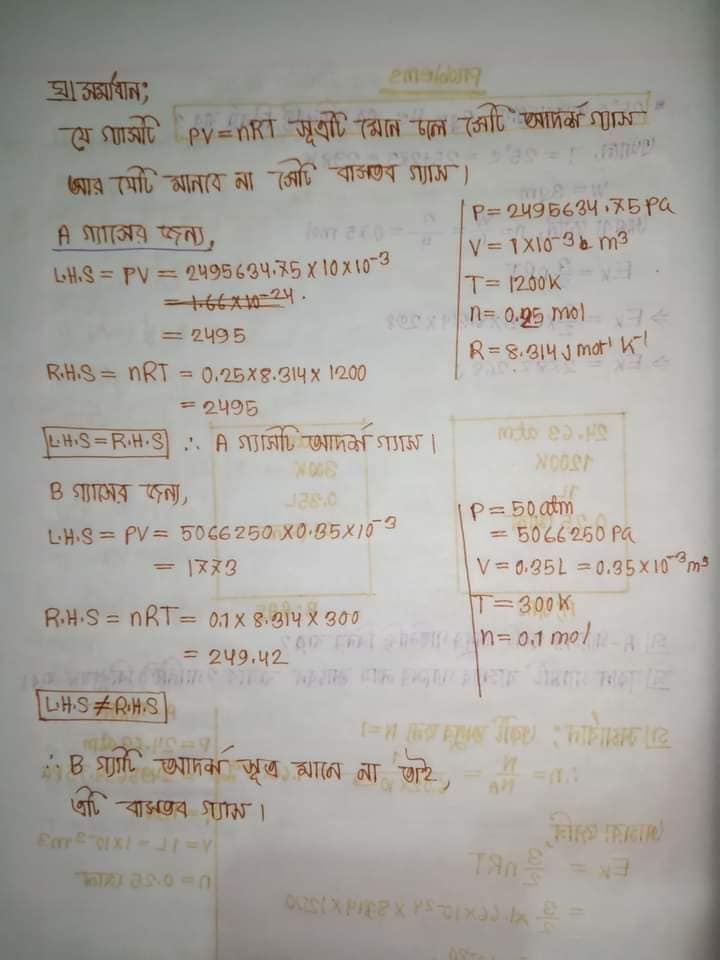 ঘ) সমাধান;
যে গ্যাসটি PV = nRT সূত্রটি মেনে চলে সেটি আদর্শ গ্যাস
আর যেটি মানবে না সেটি বাস্তব গ্যাস।
A গ্যাসের জন্য,
L.H.S = PV = 2495634.75 × 10 × 10⁻³
= 1.66 × 10⁻²⁴.
= 2495
R.H.S = nRT = 0.25 × 8.314 × 1200
= 2495
P = 2495634.75 Pa
V = 1 × 10⁻³ m³
T = 1200K
n = 0.25 mol
R = 8.314 J mol⁻¹ K⁻¹
L.H.S = R.H.S ∴ A গ্যাসটি আদর্শ গ্যাস।
B গ্যাসের জন্য,
L.H.S = PV = 5066250 × 0.35 × 10⁻³
= 1773
R.H.S = nRT = 0.1 × 8.314 × 300
= 249.42
P = 50 atm
= 5066250 Pa
V = 0.35L = 0.35 × 10⁻³ m³
T = 300K
n = 0.1 mol
L.H.S ≠ R.H.S
∴ B গ্যাটি আদর্শ সূত্র মানে না তাই,
এটি বাস্তব গ্যাস।